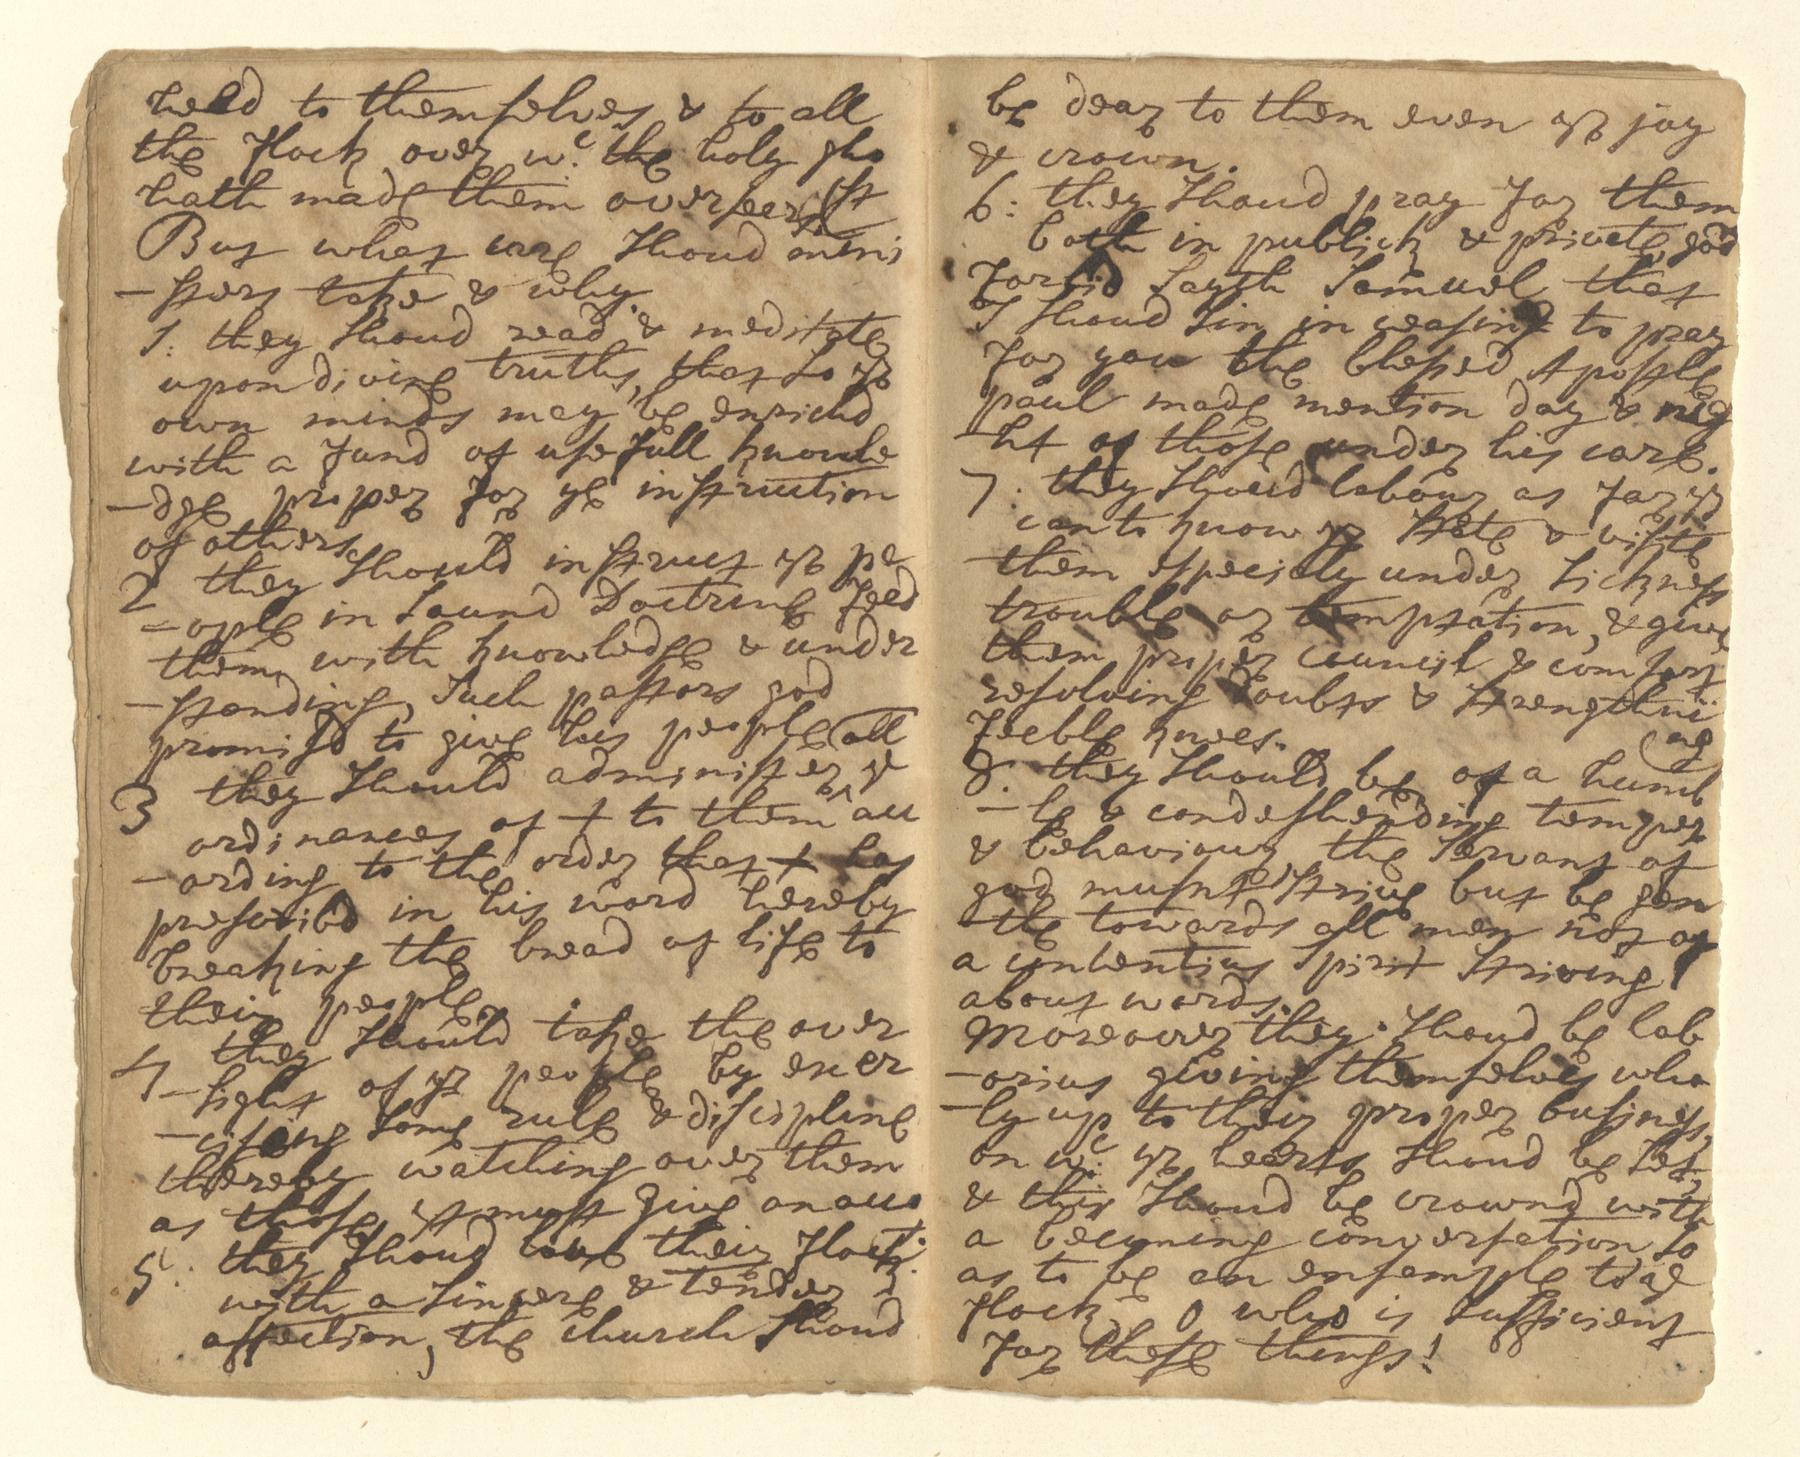 heed to themselves & to all
the flock over wc. the holy gho
hath made them overseers (st
But what care Shoud mini
-sters take & why.
1: they Shoud read & meditate
upon divine truths, that so yr
own minds may be enrichd
with a fund of usefull knowle
-dge proper for ye instruction
of others
2 they Should instruct yr pe
-ople in Sound Doctrine feed
them with knowledge & under
-standing, Such pastors god
promisd to give his people (all
3 they Should administer ye
ordinances of + to them acc
-ording to the order that + has
prescribd in his word hereby
breaking the bread of life to
their people.
4 they Should take the over
-sight of yr people by exer
-cising Some rule & discipline
thereby watching over them
as those yt must give an acco
5: they Shoud love their flock
with a Sincere & tender
affection, the church Shoud
be dear to them even yr joy
& crown.
6: they Shoud pray for them
both in publick & private, god
forbid Sayth Samuel that
I Shoud Sin in ceasing to pray
for you the blessed Apostle
paul made mention day & nig
-ht of those under his care.
7: they Shoud labour as far as
can to know yr State & visite
them especialy under Sickness
trouble or temptation, & give
them proper council & comfort
resolving doubts & Strengthni
feeble knees. (ng
8: they Should be of a humb
-le & condeshending temper
& behaviour, the Servant of
god musnt Strive but be gen
-tle towards all men not of
a contentius Spirit Striving
about words.
Moreover they Shoud be lab
-orius giving themselves who
-ly up to their proper business,
on wc: yr hearts Shoud be Set
& this Shoud be crownd with
a becoming conversation So
as to be an ensemple to ye
flock, O who is Sufficient
for these things!